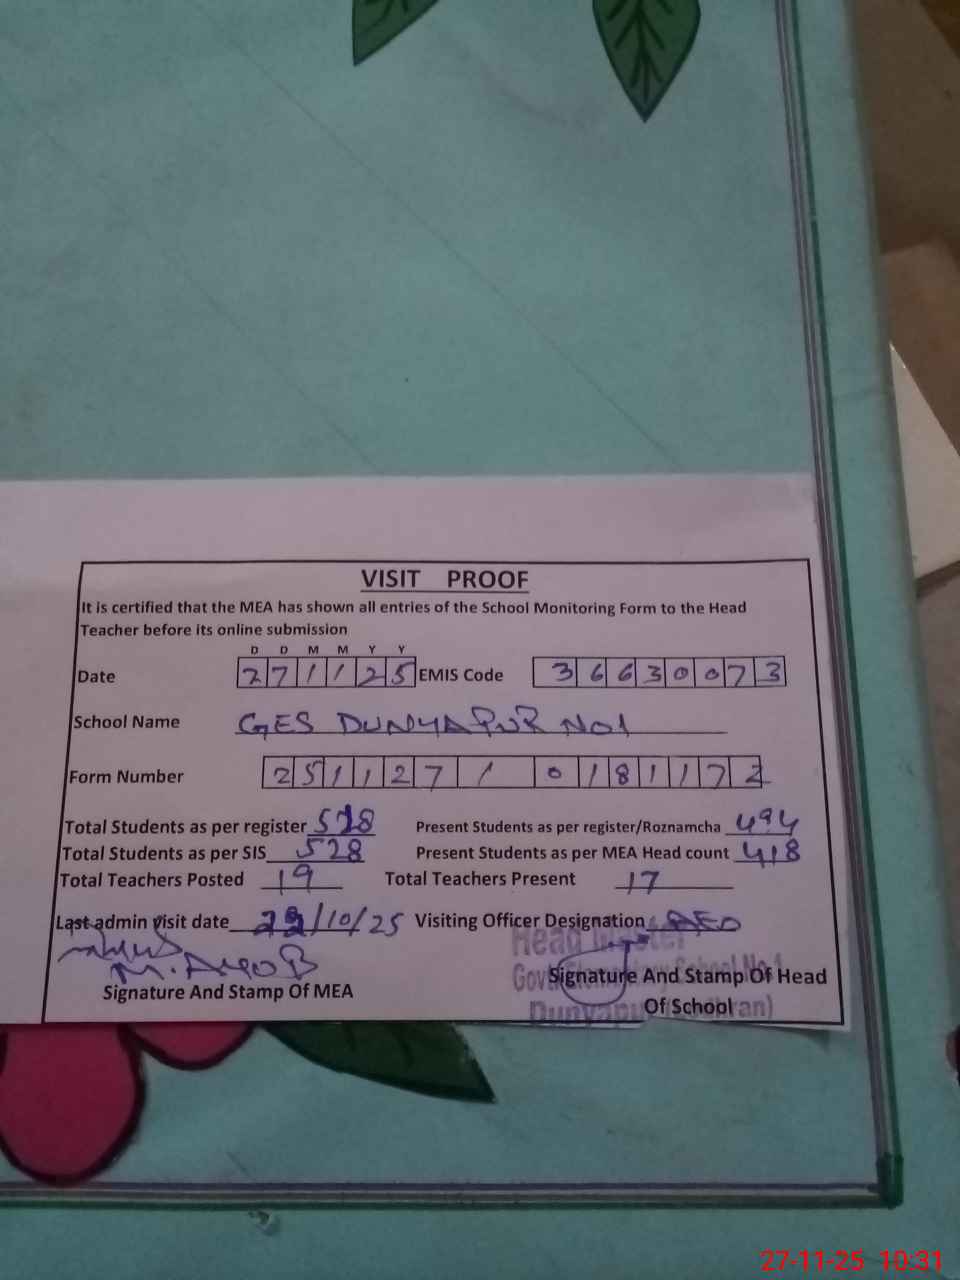 VISIT PROOF
It is certified that the MEA has shown all entries of the School Monitoring Form to the Head
Teacher before its online submission
D D M M Y Y
Date 27 11 25 EMIS Code 36630073
School Name GES DUNYAPUR NO1
Form Number 251127 / 0181172
Total Students as per register 528 Present Students as per register/Roznamcha 494
Total Students as per SIS 528 Present Students as per MEA Head count 418
Total Teachers Posted 19 Total Teachers Present 17
Last admin visit date /10/25 Visiting Officer Designation AEO
Head Master
M. AYOB
Govt. Elementary School No.1
Signature And Stamp Of Head
Signature And Stamp Of MEA
Of School
Dunyapur (Lodhran)
27-11-25 10:31